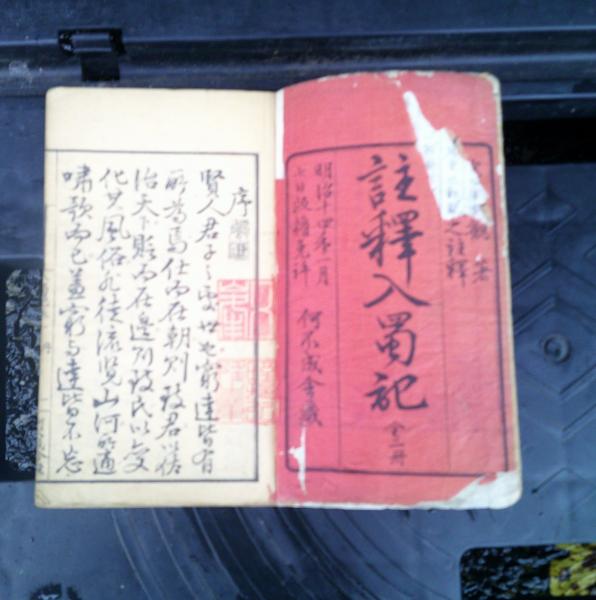 觀 著
之註釋
註釋入蜀記 全二冊
明治十四年一月
七日版權免許 何不成舍藏
序
賢人君子之處世也窮達皆有
所為焉仕而在朝則致君以
治天下貶而在邊則致民以變
化其風俗非徒流覽山河以適
嘯歌而已蓋窮與達皆不忘